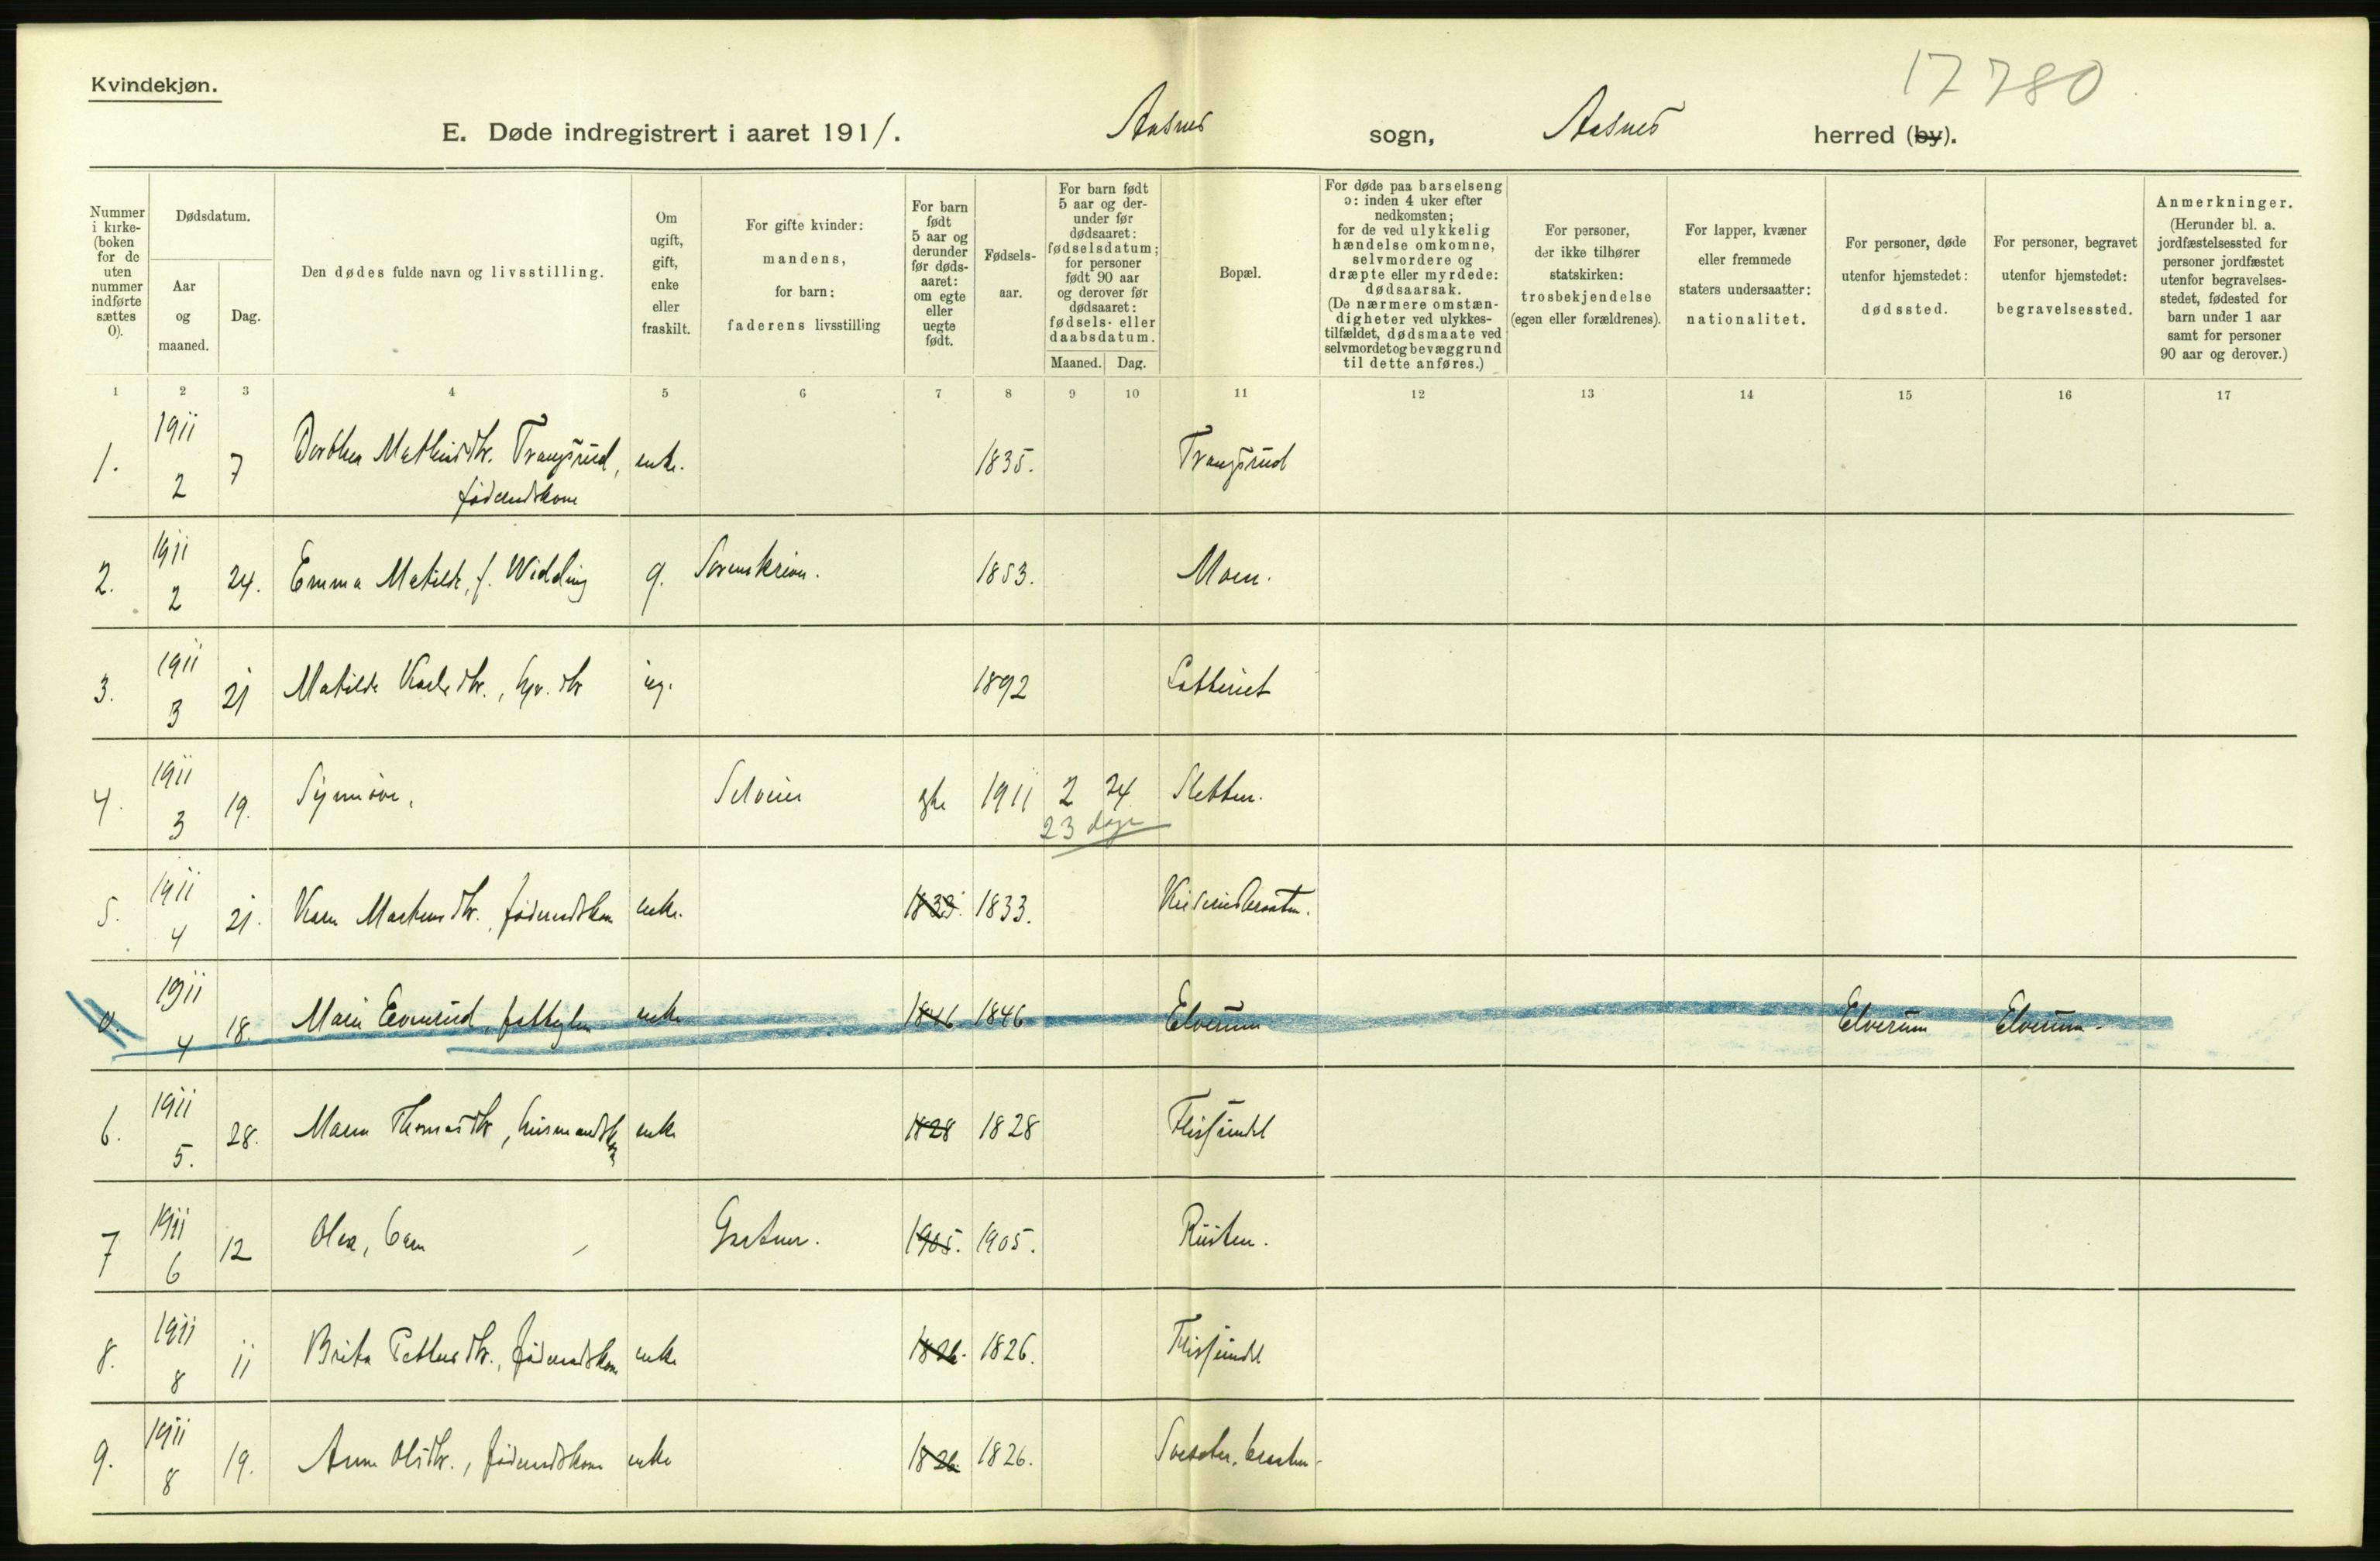 17780
Kvindekjøn.
E. Døde indregistrert i aaret 1911. Aasnes sogn, Aasnes herred (by).
Nummer i kirke-(boken for de uten nummer indførte sættes 0).
Dødsdatum.
Aar og maaned.
Dag.
Den dødes fulde navn og livsstilling.
Om ugift, gift, enke eller fraskilt.
For gifte kvinder: mandens, for barn: faderens livsstilling
For barn født 5 aar og derunder før døds-aaret: om egte eller uegte født.
Fødsels-aar.
For barn født 5 aar og der-under før dødsaaret: fødselsdatum; for personer født 90 aar og derover før dødsaaret: fødsels- eller daabsdatum.
Maaned. Dag.
Bopæl.
For døde paa barselseng ɔ: inden 4 uker efter nedkomsten; for de ved ulykkelig hændelse omkomne, selvmordere og dræpte eller myrdede: dødsaarsak. (De nærmere omstæn-digheter ved ulykkes-tilfældet, dødsmaate ved selvmord et og bevæggrund til dette anføres.)
For personer, der ikke tilhører statskirken: trosbekjendelse (egen eller forældrenes).
For lapper, kvæner eller fremmede staters undersaatter: nationalitet.
For personer, døde utenfor hjemstedet: dødssted.
For personer, begravet utenfor hjemstedet: begravelsessted.
Anmerkninger. (Herunder bl. a. jordfæstelsessted for personer jordfæstet utenfor begravelses-stedet, fødested for barn under 1 aar samt for personer 90 aar og derover.)
1 2 3 4 5 6 7 8 9 10 11 12 13 14 15 16 17
1. 1911 2 7 Dorthea Mathisdtr. Trangsrud, enke. 1835. Trangsrud
føderaadskone
2. 1911 2 24. Emma Matilde, f. Widding g. Sorenskriver. 1853. Moen.
3. 1911 3 21 Matilde Karlsdtr., gv. dtr ug. 1892
4. 1911 3 19. Synnøve, Selveier egte 1911 2 24 Sletten.
23 dage
5. 1911 4 21. Karen Martensdtr., føderaadskone enke. 1833. 1833.
0. 1911 4 18. Maren fattiglem enke 1846 1846 Elverum Elverum Elverum.
6. 1911 5. 28. Maren Thomasdtr, husmandskone enke 1828 1828 Flisfundet
7 1911 6 12 Olea, barn Gartner. 1905. 1905. Rusten.
8. 1911 8 11 Brita Pettersdtr., føderaadskone enke 1826. 1826. Flisfundet
9. 1911 8 19. Anne Olsdtr., føderaadskone enke 1826 1826.